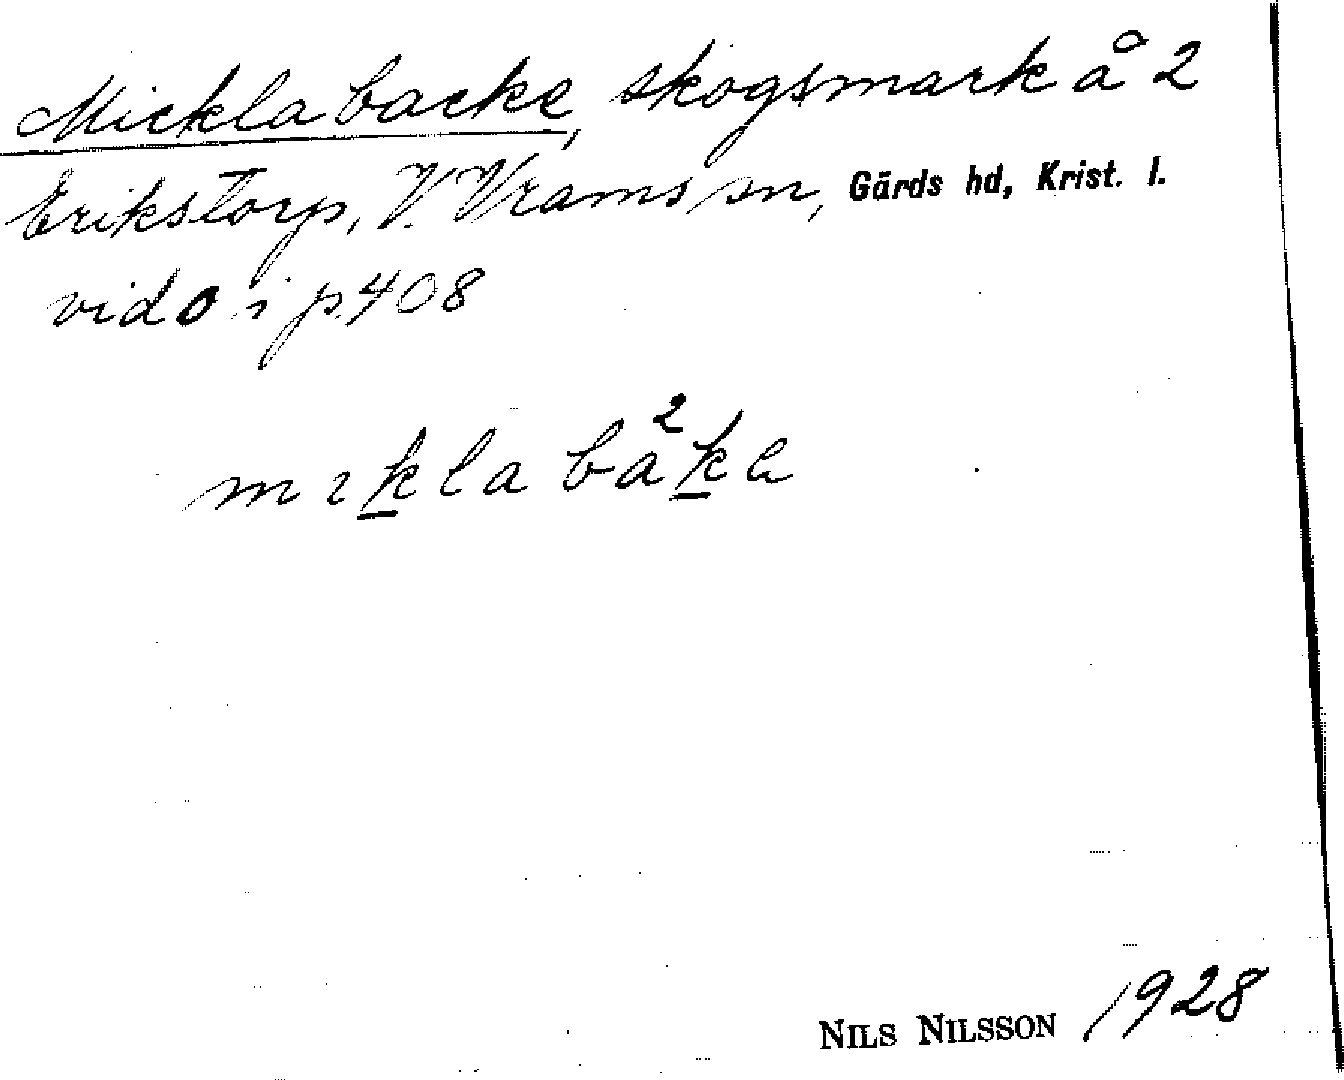 Micklabacke, skogsmark å 2
Erikstorp, V. Vrams sn, Gärds hd, Krist. l.
vid o i p. 408
mıkla ba²ka
NILS NILSSON 1928